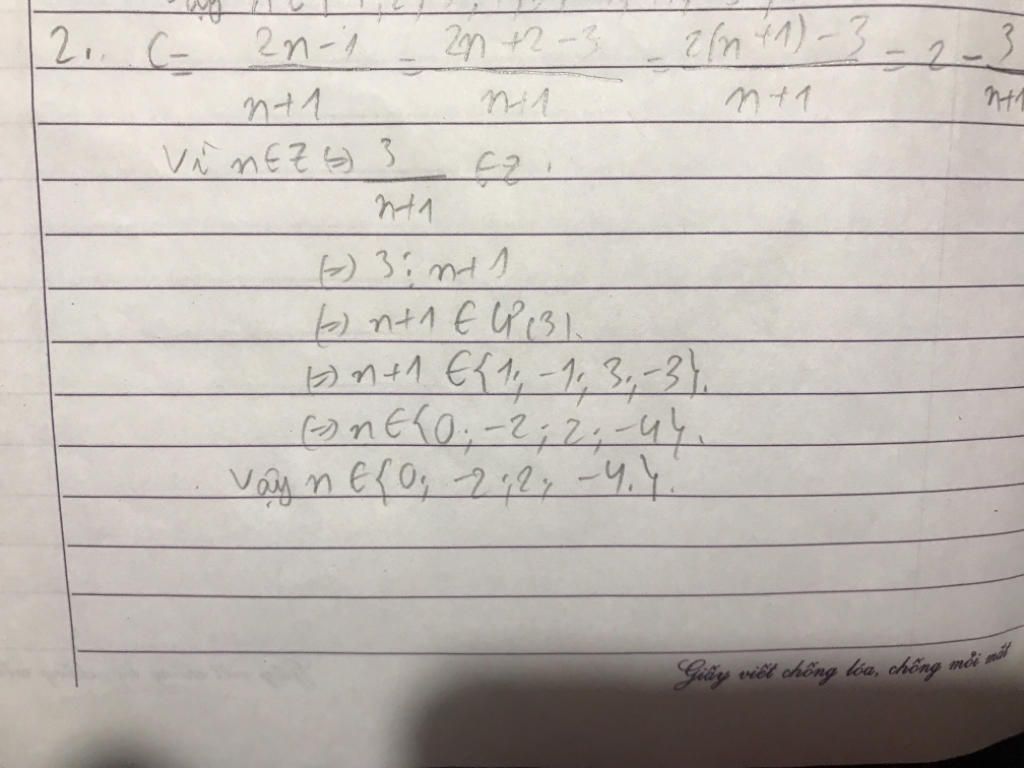 2. C = \frac{2n-1}{n+1} = \frac{2n+2-3}{n+1} = \frac{2(n+1)-3}{n+1} = 2 - \frac{3}{n+1}
Vì n∈Z (=) \frac{3}{n+1} ∈Z.
(=) 3 ⋮ n+1
(=) n+1 ∈ Ư(3).
(=) n+1 ∈{1; -1; 3; -3}.
(=) n∈{0; -2; 2; -4}.
Vậy n ∈{0; -2; 2; -4.}.
Giấy viết chống lóa, chống mỏi mắt